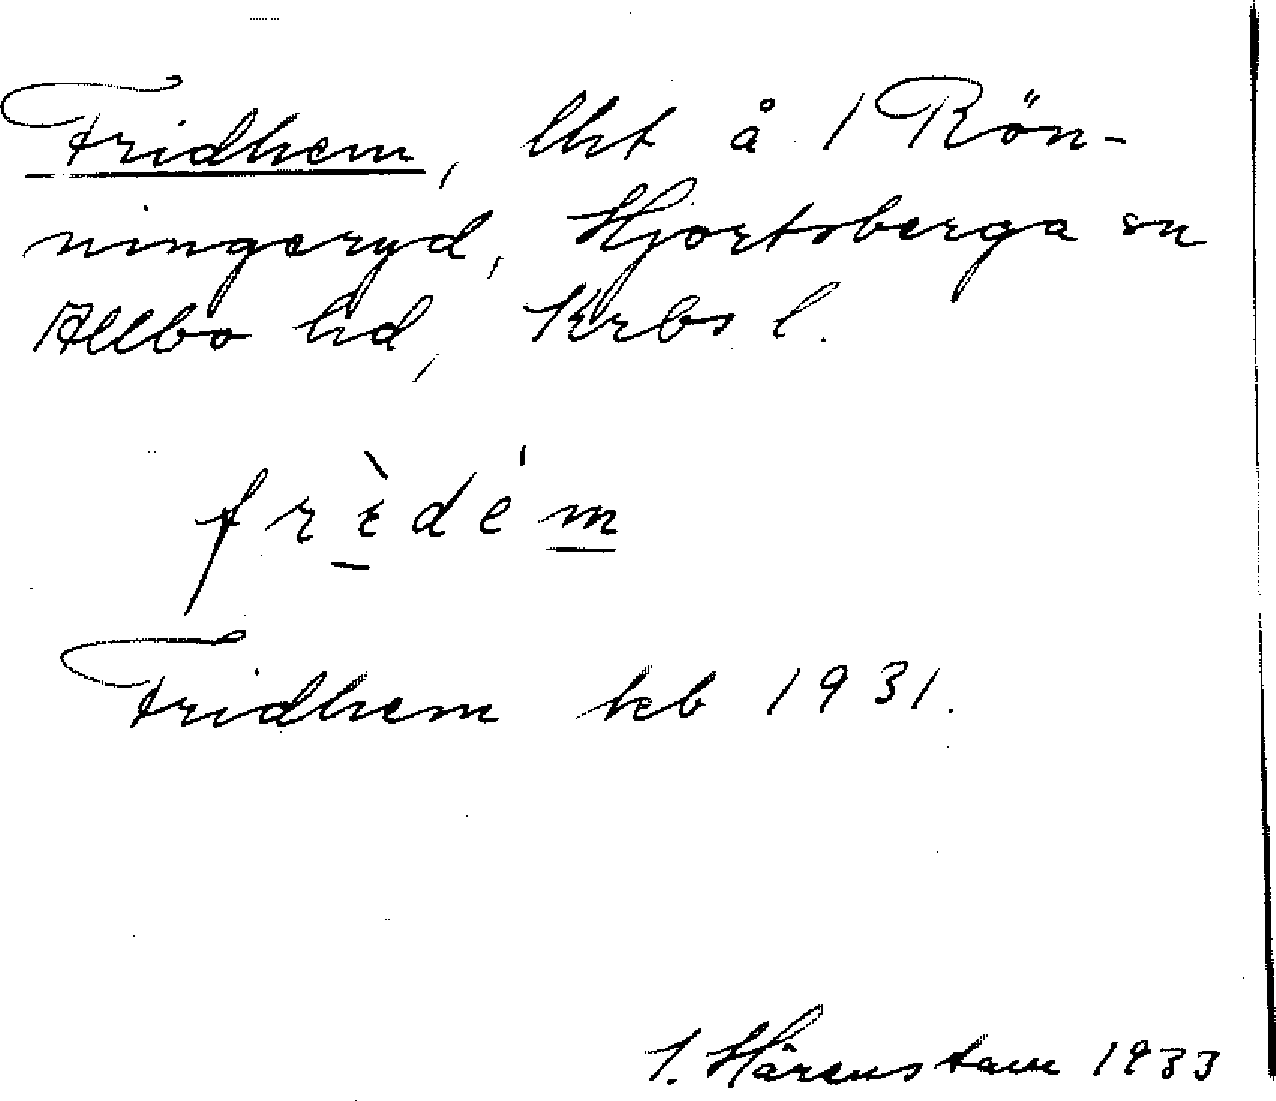 Fridhem, lht å 1 Rön-
ningeryd, Hjortsberga sn
Allbo hd, Krbs l.
frèdém
Fridhem kb 1931.
1. Hårenstam 1933